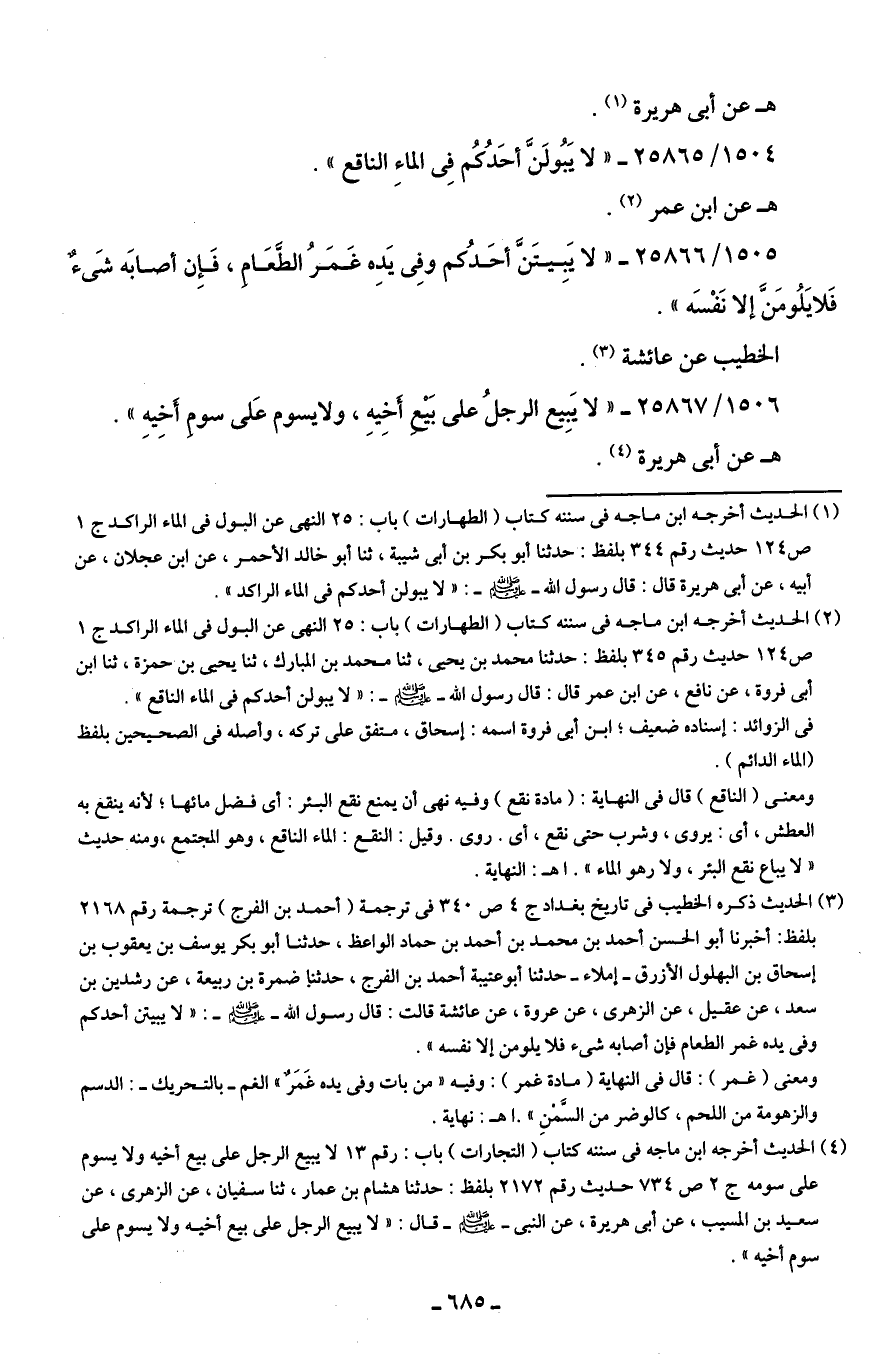 هـ عن أبى هريرة (١) .
١٥٠٤/ ٢٥٨٦٥ ـ « لا يَبُولَنَّ أحَدُكُم فِى الماءِ الناقع » .
هـ عن ابن عمر (٢) .
١٥٠٥/ ٢٥٨٦٦ ـ « لا يَبِيتَنَّ أحَدُكُم وفِى يَدِه غَمَرُ الطَّعَامِ ، فَإِن أصابَه شَىءٌ
فَلايَلُومَنَّ إلا نَفْسَه » .
الخطيب عن عائشة (٣) .
١٥٠٦/ ٢٥٨٦٧ ـ « لا يَبِيع الرجلُ على بَيْعِ أَخِيهِ ، ولايسوم عَلى سومِ أَخِيهِ » .
هـ عن أبى هريرة (٤) .
(١) الحديث أخرجه ابن ماجه فى سننه كتاب ( الطهارات ) باب : ٢٥ النهى عن البول فى الماء الراكد ج ١
ص١٢٤ حديث رقم ٣٤٤ بلفظ : حدثنا أبو بكر بن أبى شيبة ، ثنا أبو خالد الأحمر ، عن ابن عجلان ، عن
أبيه ، عن أبى هريرة قال : قال رسول الله ـ ﷺ ـ : « لا يبولن أحدكم فى الماء الراكد » .
(٢) الحديث أخرجه ابن ماجه فى سننه كتاب ( الطهارات ) باب : ٢٥ النهى عن البول فى الماء الراكد ج ١
ص١٢٤ حديث رقم ٣٤٥ بلفظ : حدثنا محمد بن يحيى ، ثنا محمد بن المبارك ، ثنا يحيى بن حمزة ، ثنا ابن
أبى فروة ، عن نافع ، عن ابن عمر قال : قال رسول الله ـ ﷺ ـ : « لا يبولن أحدكم فى الماء الناقع » .
فى الزوائد : إسناده ضعيف ؛ ابن أبى فروة اسمه : إسحاق ، متفق على تركه ، وأصله فى الصحيحين بلفظ
(الماء الدائم ) .
ومعنى ( الناقع ) قال فى النهاية : ( مادة نقع ) وفيه نهى أن يمنع نقع البئر : أى فضل مائها ؛ لأنه ينقع به
العطش ، أى : يروى ، وشرب حتى نقع ، أى . روى . وقيل : النقع : الماء الناقع ، وهو المجتمع ،ومنه حديث
« لا يباع نقع البئر ، ولا رهو الماء » . ا هـ : النهاية .
(٣) الحديث ذكره الخطيب فى تاريخ بغداد ج ٤ ص ٣٤٠ فى ترجمة ( أحمد بن الفرج ) ترجمة رقم ٢١٦٨
بلفظ: أخبرنا أبو الحسن أحمد بن محمد بن أحمد بن حماد الواعظ ، حدثنا أبو بكر يوسف بن يعقوب بن
إسحاق بن البهلول الأزرق ـ إملاء ـ حدثنا أبوعتيبة أحمد بن الفرج ، حدثنا ضمرة بن ربيعة ، عن رشدين بن
سعد ، عن عقيل ، عن الزهرى ، عن عروة ، عن عائشة قالت : قال رسول الله ـ ﷺ ـ : « لا يبيتن أحدكم
وفى يده غمر الطعام فإن أصابه شىء فلا يلومن إلا نفسه » .
ومعنى ( غمر ) : قال فى النهاية ( مادة غمر ) : وفيه « من بات وفى يده غَمَرٌ » الغم ـ بالتحريك ـ : الدسم
والزهومة من اللحم ، كالوضر من السَّمْنِ » .ا هـ : نهاية .
(٤) الحديث أخرجه ابن ماجه فى سننه كتاب ( التجارات ) باب : رقم ١٣ لا يبيع الرجل على بيع أخيه ولا يسوم
على سومه ج ٢ ص ٧٣٤ حديث رقم ٢١٧٢ بلفظ : حدثنا هشام بن عمار ، ثنا سفيان ، عن الزهرى ، عن
سعيد بن المسيب ، عن أبى هريرة ، عن النبى ـ ﷺ ـ قال : « لا يبيع الرجل على بيع أخيه ولا يسوم على
سوم أخيه » .
ـ ٦٨٥ ـ